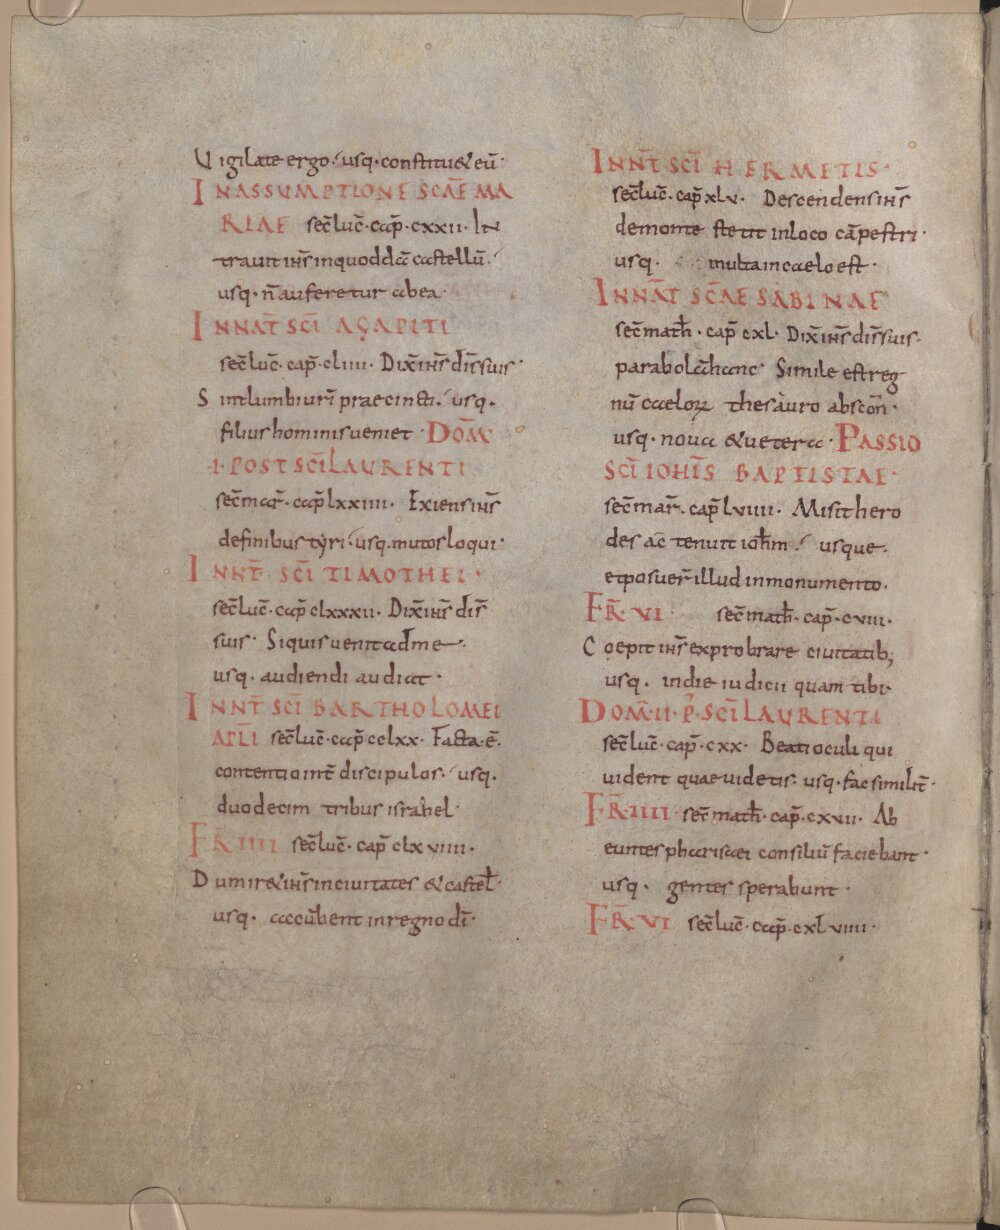 Vigilate ergo. usq· constitu& eū·
IN ASSUMPTIONE SCAE MA
RIAE sec̄ luc̄· cap̄· cxxii· In
trauit ih̄s in quoddā castellū·
usq· n̄ auferetur ab ea·
IN NAT̄ SCI AGAPITI
sec̄ luc̄· cap̄· cliiii· Dix̄ ih̄s dis̄ suis·
Sint lumbi uri praecincti· usq·
filius hominis ueniet· DOM̄
·I· POST SCI LAURENTI
sec̄ mar̄· cap̄ lxxiiii· Exiens ih̄s
de finibus tyri· usq· mutos loqui·
IN NT̄· SCI TIMOTHEI·
sec̄ luc̄· cap̄ clxxxii· Dix̄ ih̄s dis̄
suis· Siquis uenit ad me·
usq· audiendi audiat·
IN NT̄ SCI BARTHOLOMEI
APLI sec̄ luc̄· cap̄ cclxx· Facta ē·
contentio int̄ discipulos· usq·
duodecim tribus israhel·
FR̄ IIII sec̄ luc̄· cap̄ clxviiii·
Dum ir& ih̄s in ciuitates & castel̄·
usq· accūbent in regno dī·
IN NT̄ SCI HERMETIS·
sec̄ luc̄· cap̄ xlv· Descendens ih̄s
de monte stetit in loco cāpestri·
usq· multa in caelo est·
IN NAT̄ SCAE SABINAE
sec̄ math̄· cap̄ cxl· Dix̄ ih̄s dis̄ suis·
parabolā hanc· Simile est reg
nū caeloꝝ thesauro abscon̄·
usq· noua & uetera· PASSIO
SCI IOHIS BAPTISTAE·
sec̄ mar̄· cap̄ lviiii· Misit hero
des ac̄ tenuit ioh̄m· usque·
et posuer̄ illud in monumento·
FR̄· VI· sec̄ math̄· cap̄· cviii·
Coepit ih̄s exprobrare ciuitatib;
usq· in die iudicii quam tibi·
DOM̄ II· P̄· SCI LAURENTI
sec̄ luc̄· cap̄· cxx· Beati oculi qui
uident quae uidetis· usq· fac similit̄·
FR̄ IIII· sec̄ math̄· cap̄· cxvii· Ab
euntes pharisaei consiliū faciebant·
usq· gentes sperabunt·
FR̄· VI sec̄ luc̄· cap̄· cxlviiii·